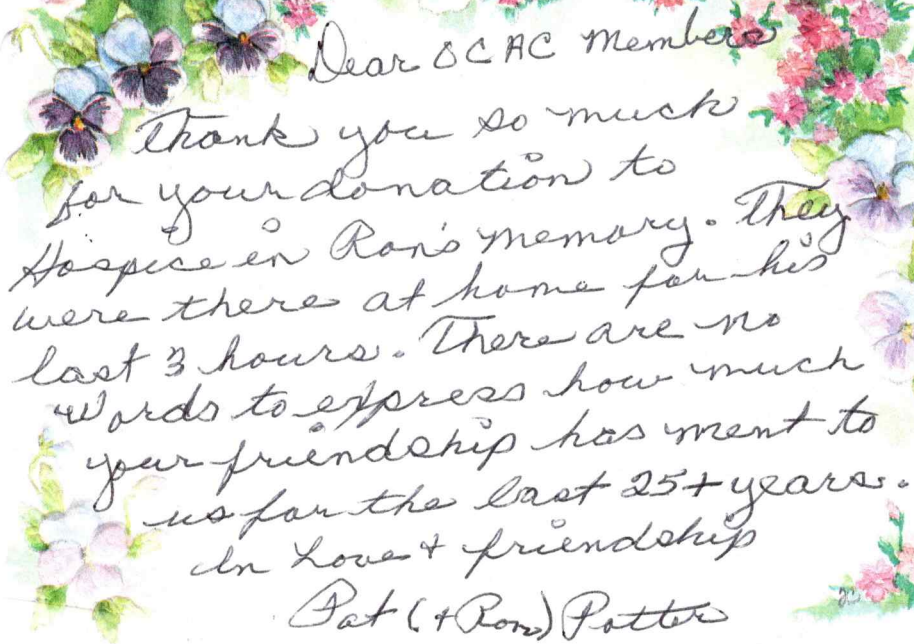 Dear OCAC Members
Thank you so much
for your donation to
Hospice in Ron's memory. They
were there at home for his
last 3 hours. There are no
words to express how much
your friendship has ment to
us for the last 25+ years.
In Love + friendship
Pat (+ Ron) Potter